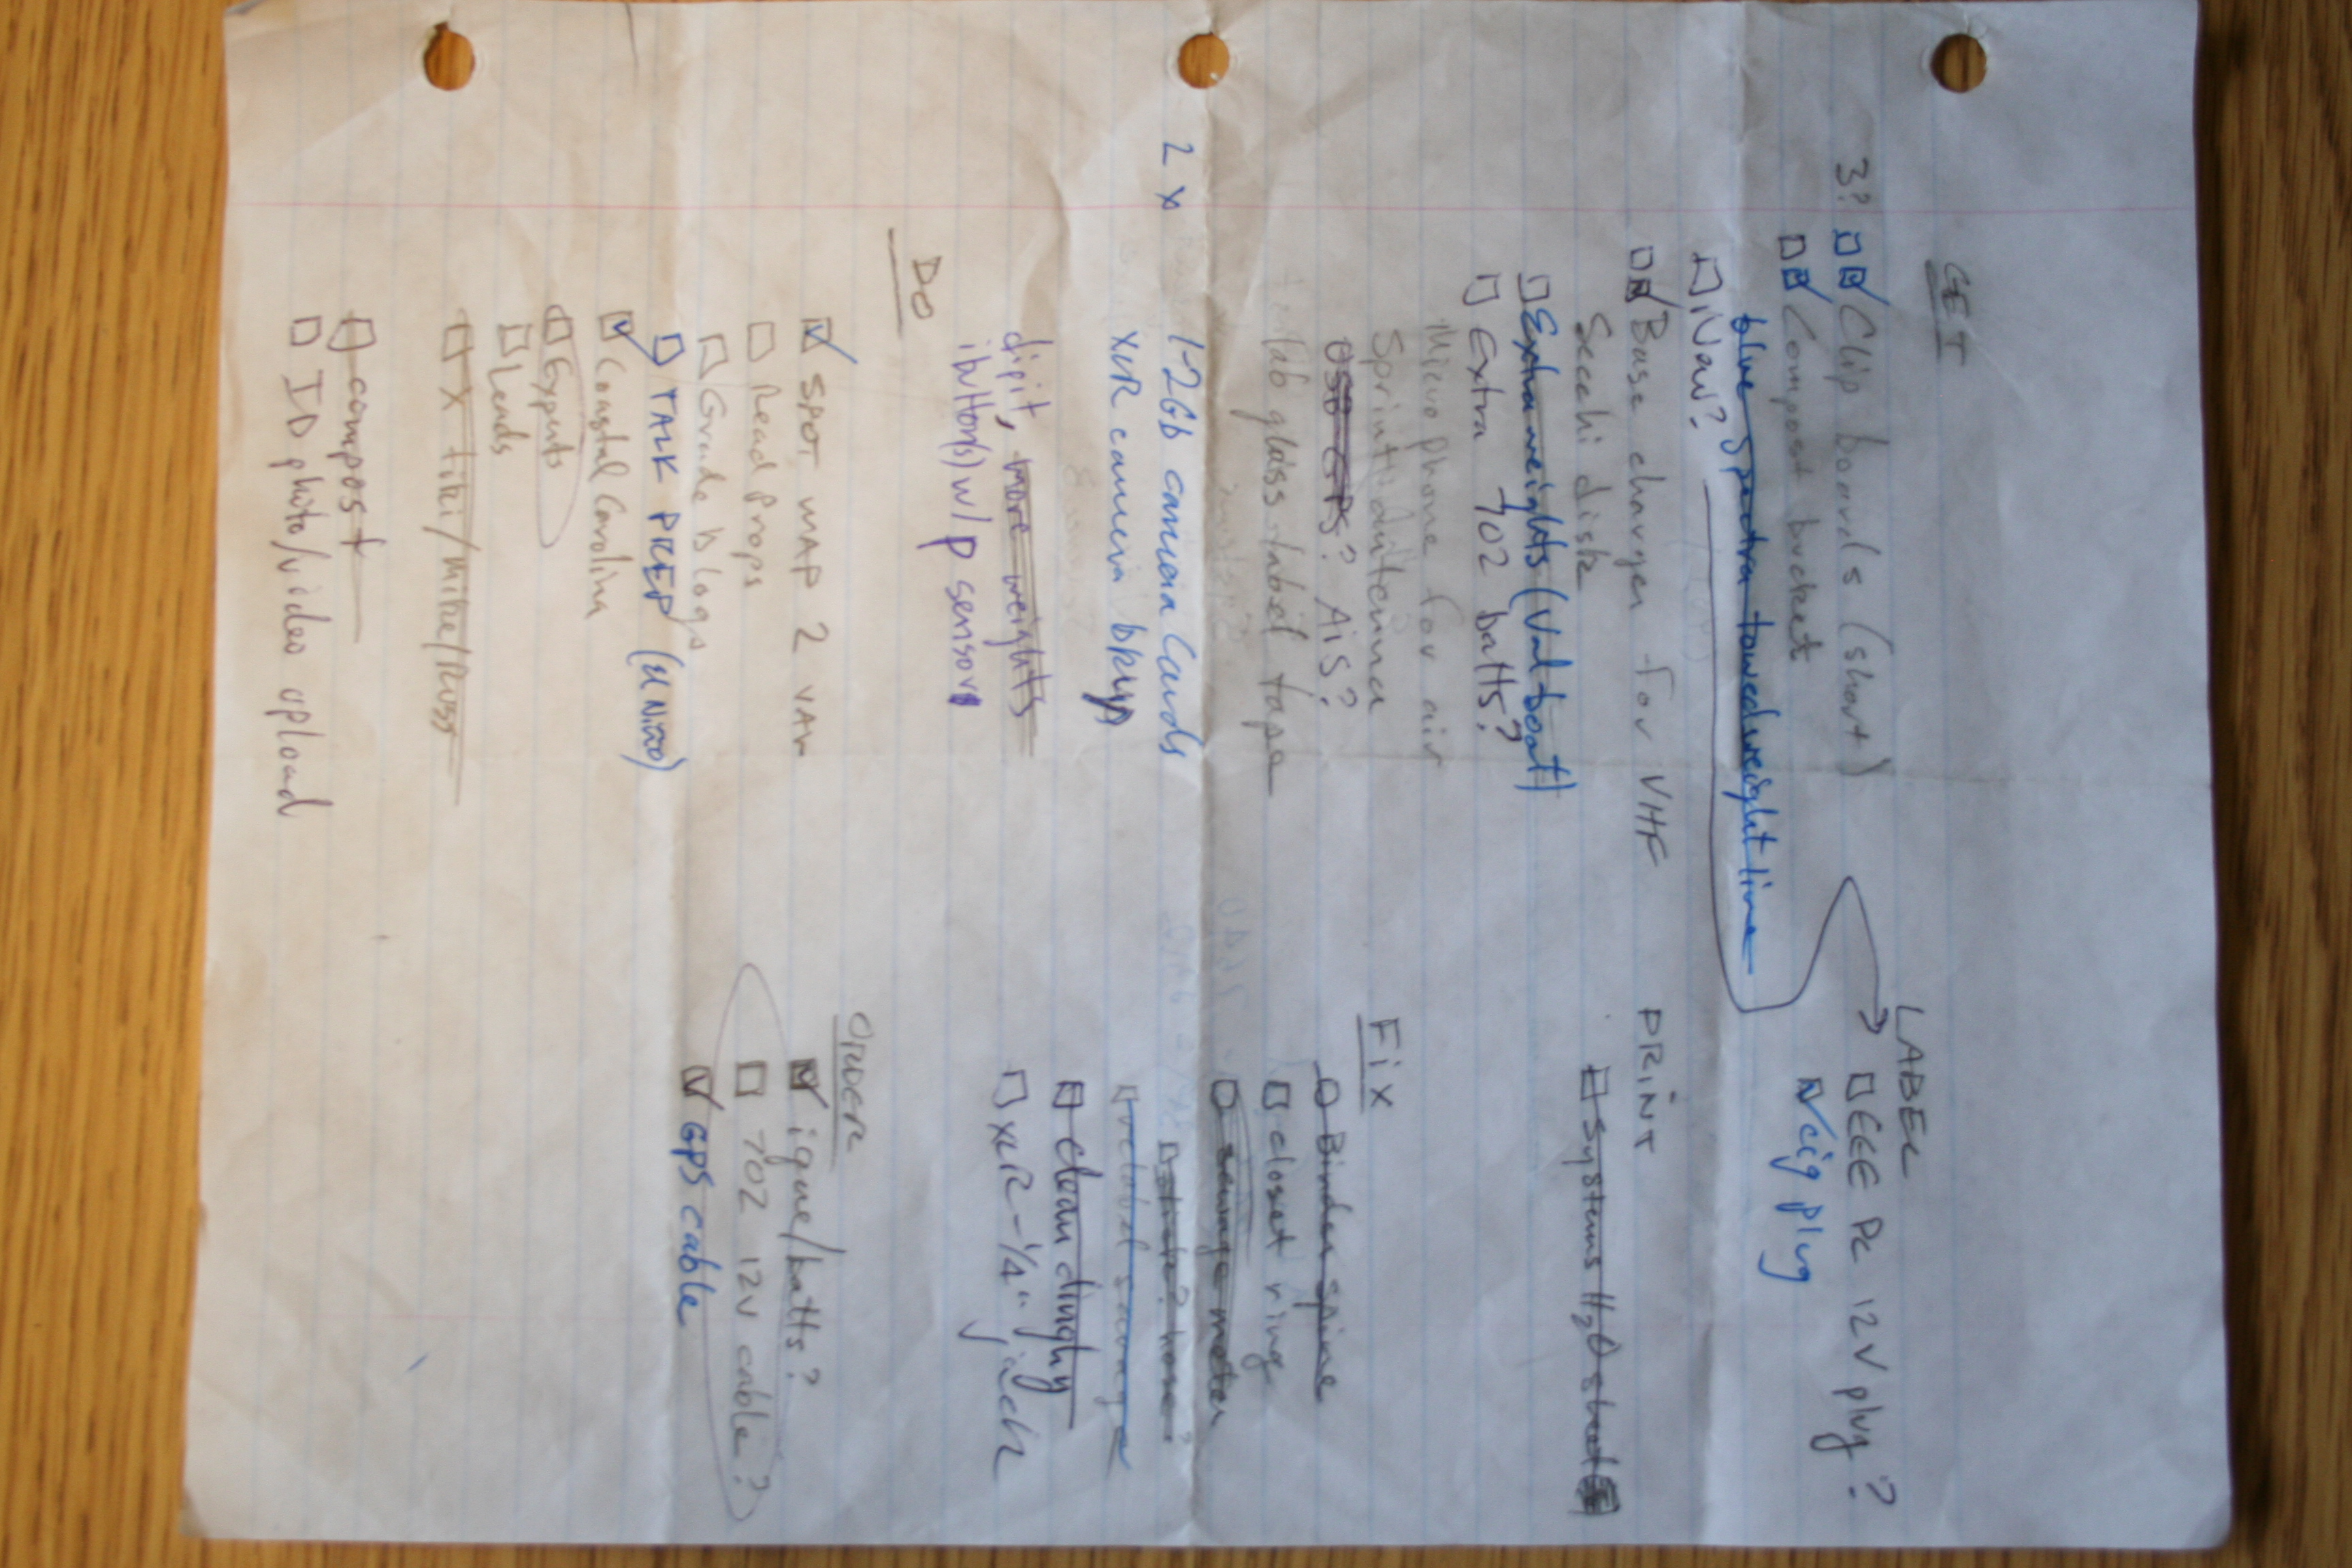 GET
3? Clip boards (short)
Compost bucket
blue spectra towed weight line
Nav?
Base charger for VHF
Secchi disk
Extra weights (Val boat)
Extra 702 batts?
Microphone for air
Sprint antenna
OSB GPS? AiS?
lab glass label tape
2 x 1-2Gb camera cards
XLR camera
digit, more weights
ibutton(s) w/ p sensor
DO
SPOT MAP 2 VAL
Read Props
Grade B logs
TALK PREP
Coastal Carolina
Experts
Lends
X tiki/mike/Russ
compost
ID photo/video upload
LABEL
EEE PC 12V plug?
cig plug
PRINT
Systems H2O sheet
Fix
Binder spine
closet ring
sewage meter
hose?
relabel sewage
clean dinghy
XLR-1/4" jack
ORDER
igaue/batts?
702 12V cable?
GPS cable